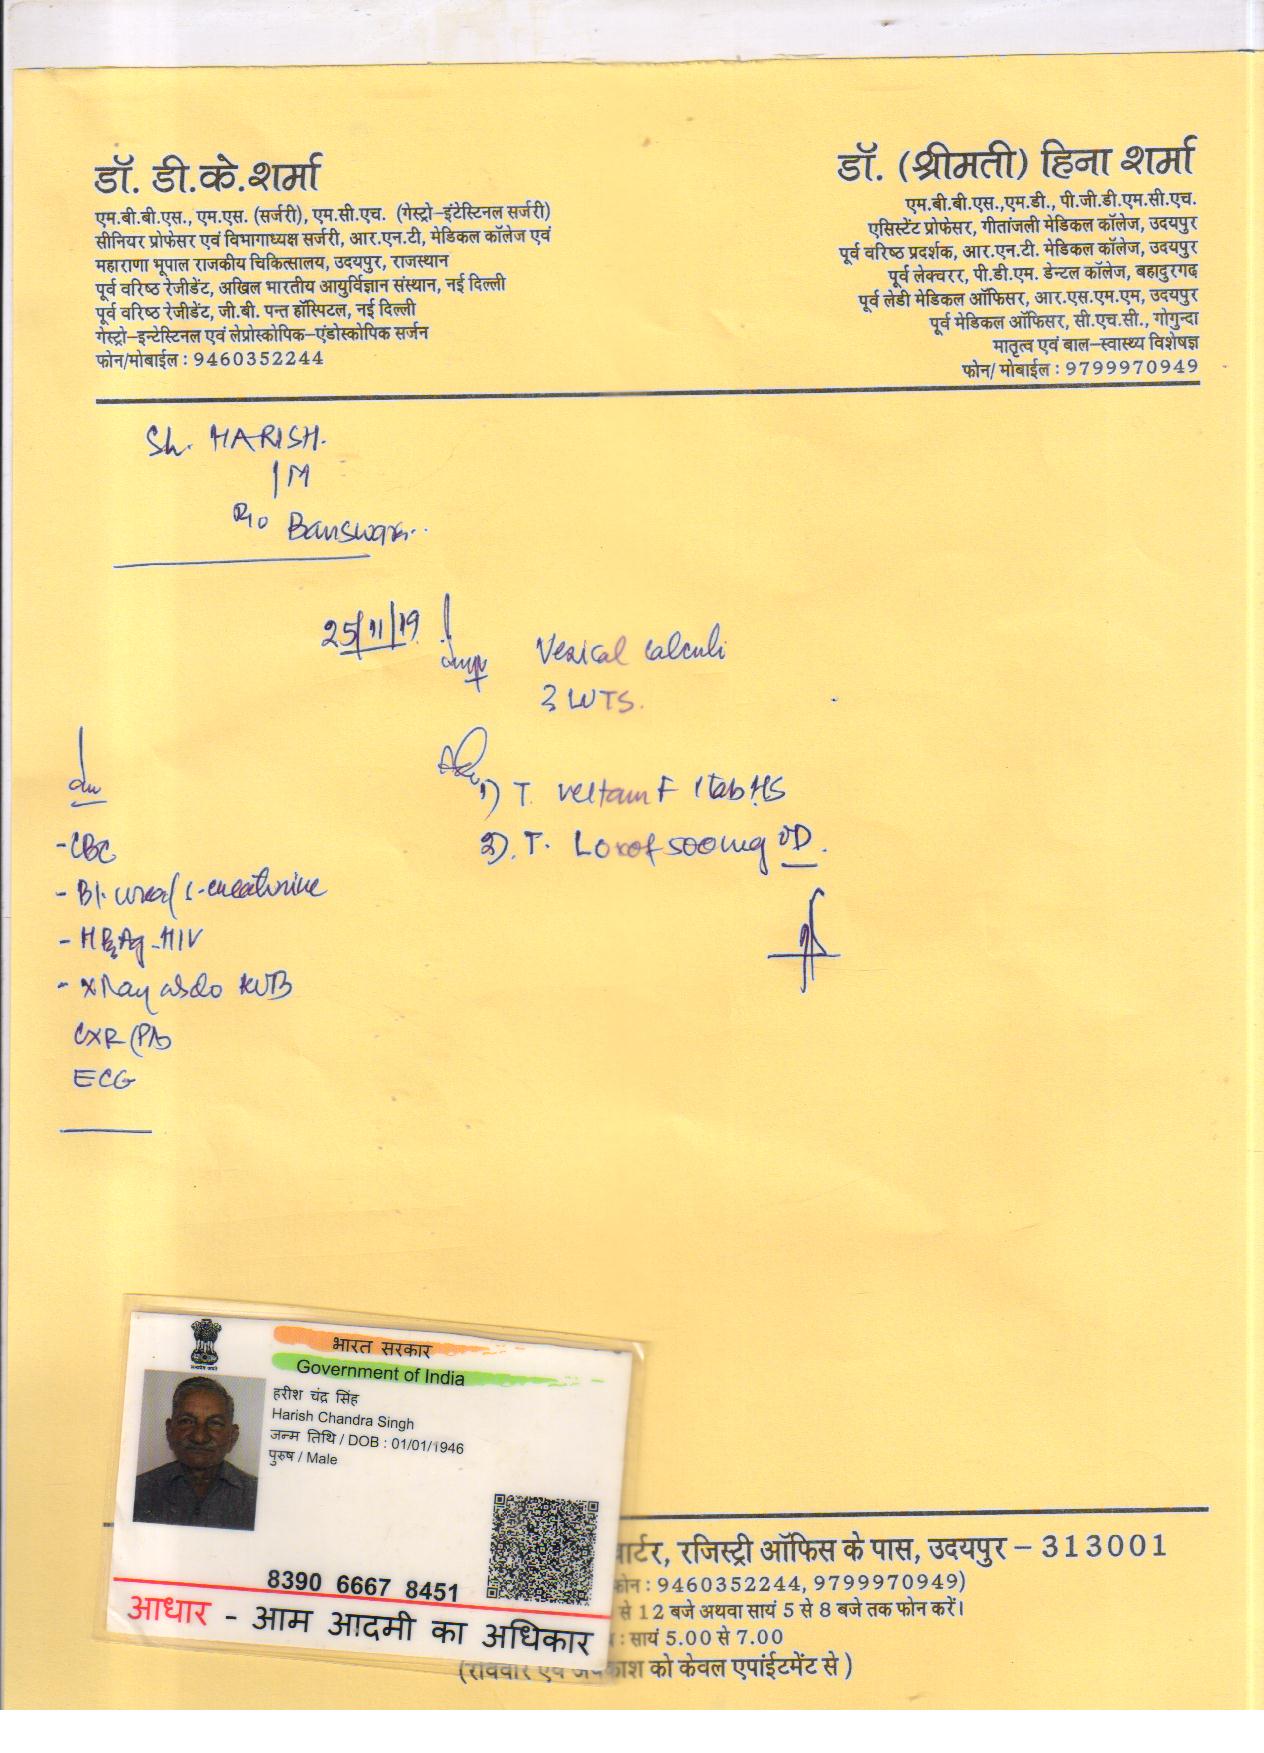 डॉ. डी.के.शर्मा
एम.बी.बी.एस., एम.एस. (सर्जरी), एम.सी.एच. (गेस्ट्रो-इंटेस्टिनल सर्जरी)
सीनियर प्रोफेसर एवं विभागाध्यक्ष सर्जरी, आर.एन.टी, मेडिकल कॉलेज एवं
महाराणा भूपाल राजकीय चिकित्सालय, उदयपुर, राजस्थान
पूर्व वरिष्ठ रेजीडेंट, अखिल भारतीय आयुर्विज्ञान संस्थान, नई दिल्ली
पूर्व वरिष्ठ रेजीडेंट, जी.बी. पन्त हॉस्पिटल, नई दिल्ली
गेस्ट्रो-इन्टेस्टिनल एवं लेप्रोस्कोपिक-एंडोस्कोपिक सर्जन
फोन/मोबाईल : 9460352244
डॉ. (श्रीमती) हिना शर्मा
एम.बी.बी.एस.,एम.डी., पी.जी.डी.एम.सी.एच.
एसिस्टेंट प्रोफेसर, गीतांजली मेडिकल कॉलेज, उदयपुर
पूर्व वरिष्ठ प्रदर्शक, आर.एन.टी. मेडिकल कॉलेज, उदयपुर
पूर्व लेक्चरर, पी.डी.एम. डेन्टल कॉलेज, बहादुरगढ़
पूर्व लेडी मेडिकल ऑफिसर, आर.एस.एम.एम, उदयपुर
पूर्व मेडिकल ऑफिसर, सी.एच.सी., गोगुन्दा
मातृत्व एवं बाल-स्वास्थ्य विशेषज्ञ
फोन/ मोबाईल : 9799970949
Sh. HARISH.
/M
R/o Banswara..
25/11/19
Vesical calculi
LUTS.
1) T. Veltam F 1 tab HS
2). T. Loxof 500mg OD.
- CBC
- Bl. urea/ S. creatinine
- HBsAg - HIV
- X Ray abdo KUB
CXR (PA)
ECG
भारत सरकार
Government of India
हरीश चंद्र सिंह
Harish Chandra Singh
जन्म तिथि / DOB : 01/01/1946
पुरुष / Male
8390 6667 8451
आधार - आम आदमी का अधिकार
रजिस्ट्री ऑफिस के पास, उदयपुर - 313001
: 9460352244, 9799970949)
से 12 बजे अथवा सायं 5 से 8 बजे तक फोन करें।
: सायं 5.00 से 7.00
को केवल एपांईटमेंट से )